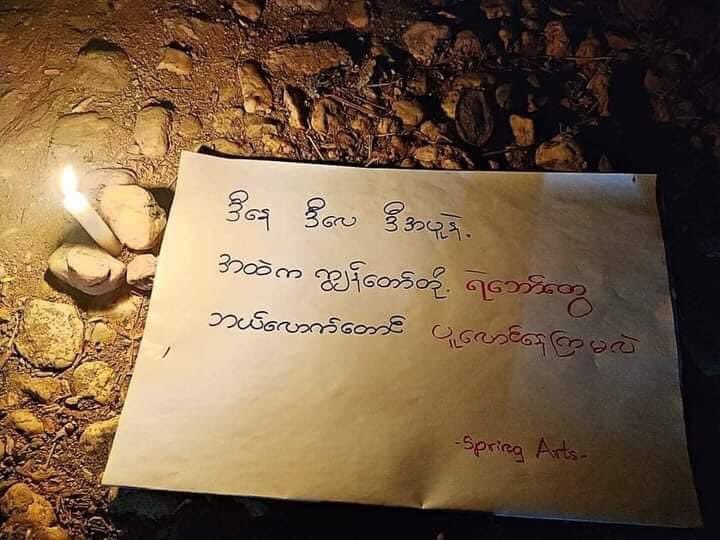 ဒီနေ ဒီလေ ဒီအပူနဲ့.
အထဲက ကျွန်တော်တို့. ရဲဘော်တွေ
ဘယ်လောက်တောင် ပူလောင်နေကြမလဲ
-Spring Arts-